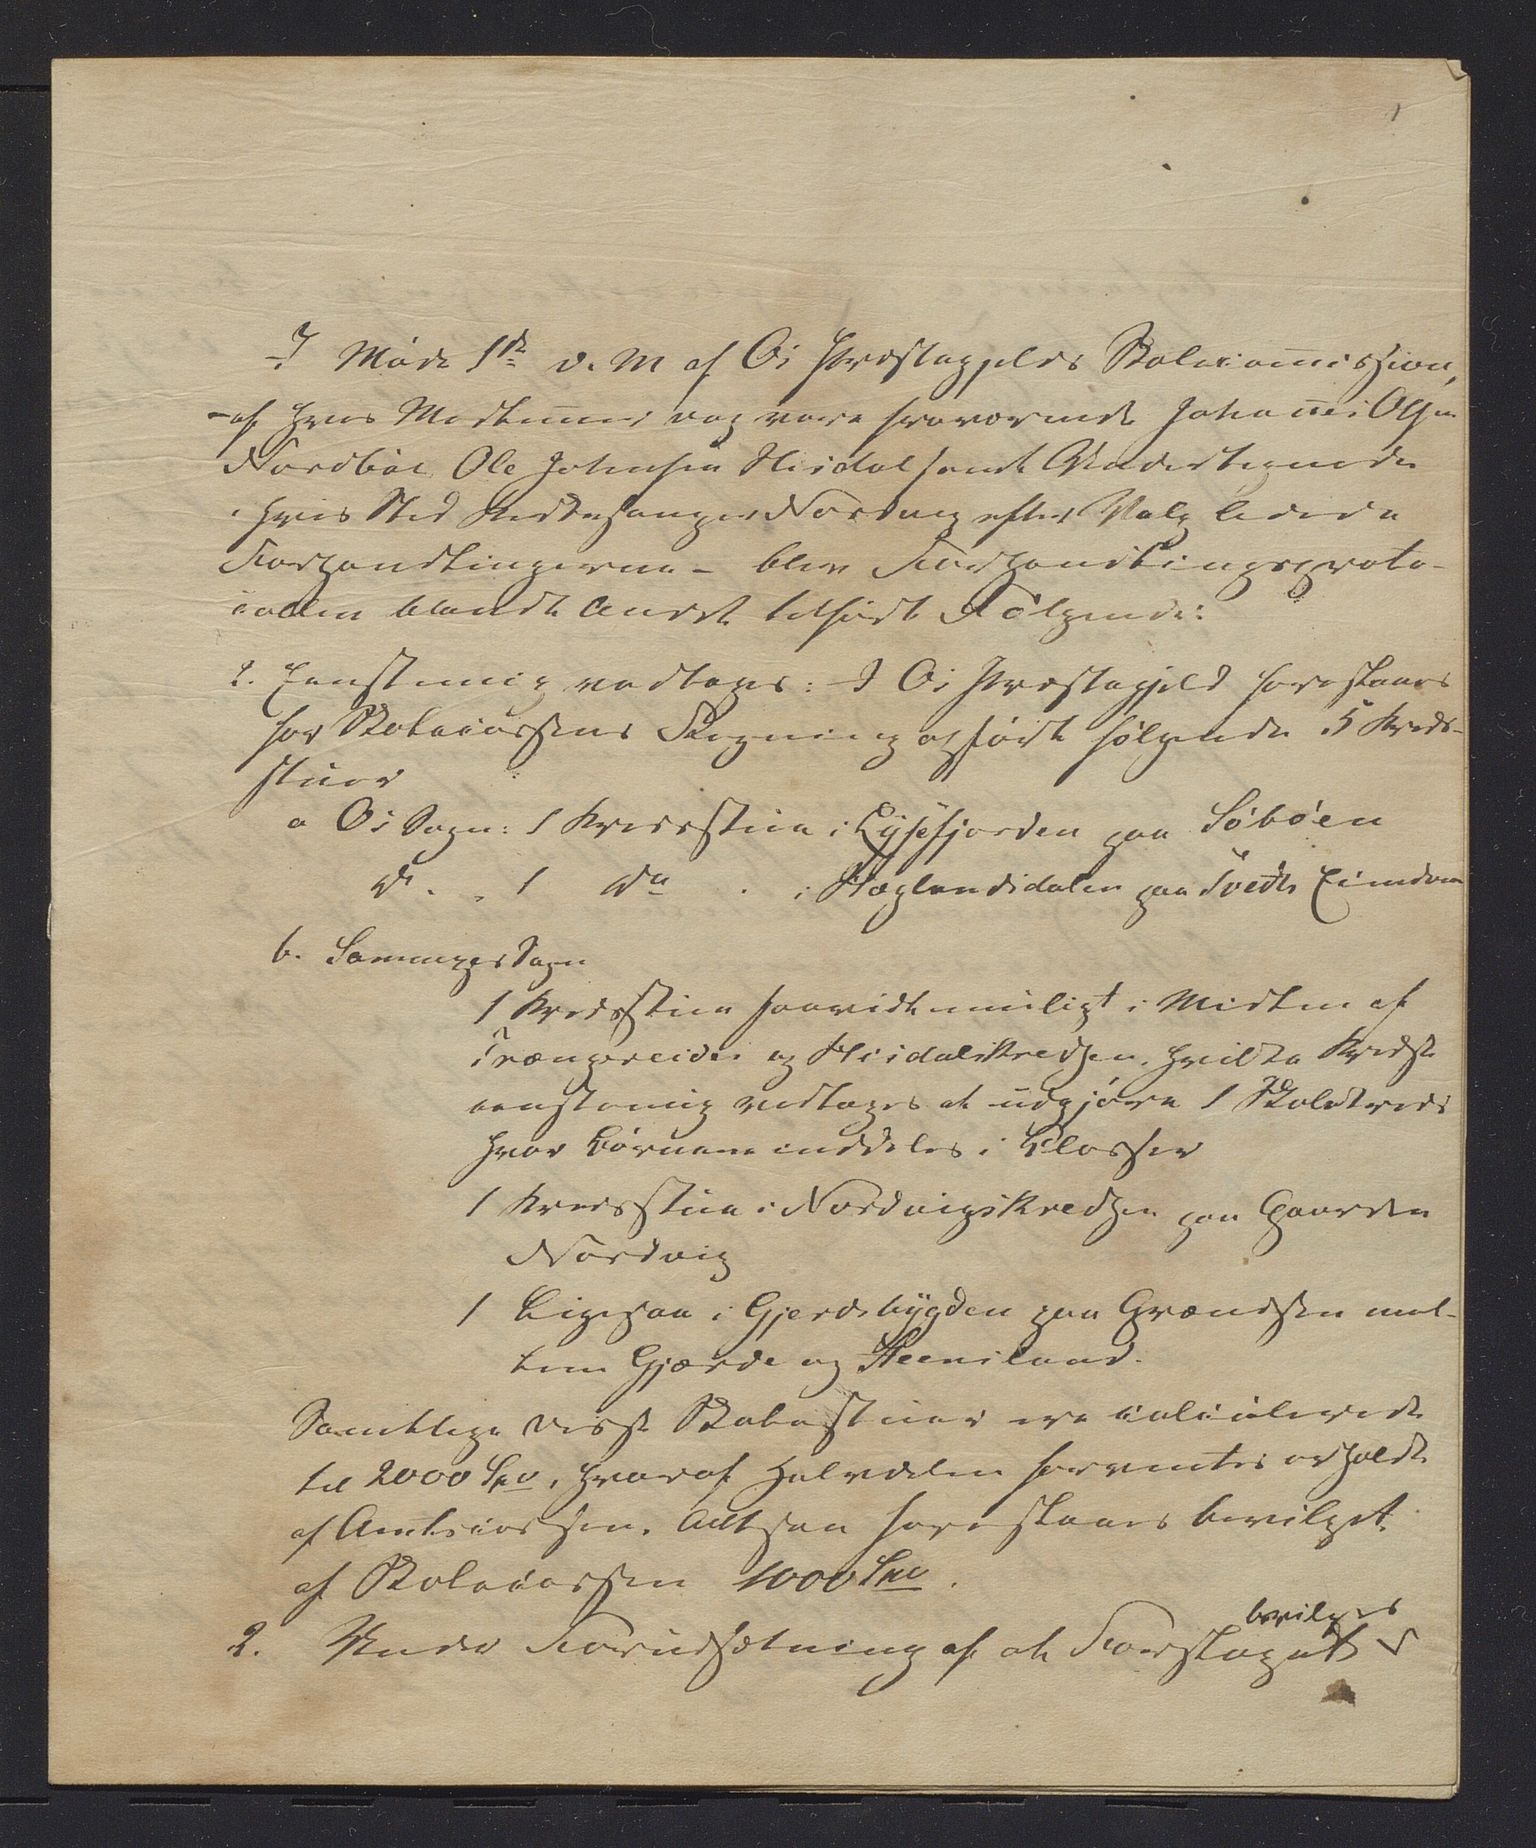 1
I Møde 1ste d. M af Os Præstegjelds Skolecommission,
- af hvis Medlemmer var fraværende Johannes Olsen
Nordbøe, Ole Johnsen Hisdal samt Undertegnede
i hvis Sted Kirkesanger Nordvig efter Valg ledede
Forhandlingerne - blev Forhandlingsproto-
collen blandt Andet tilført Følgende:
2. Eenstemmig vedtages: I Os Præstegjeld foreslaaes
for Skolecassens Regning opført følgende 5 Kreds-
stuer
a Os Sogn: 1 Kredsstue i Lysefjorden paa Søbøen
do. " 1 do . i Hæglandsdalen paa Tvedts Eiendom
b. Samnanger Sogn
1 Kredsstue saavidt muligt i Midten af
Trængereids og Hisdalskredsen, hvilke Kredse
eenstemmig vedtages at udgjøre 1 Skolekreds
hvor Børnene inddeles i Classer
1 Kredsstue i Nordvigskredsen paa Gaarden
Nordvig
1 Ligesaa i Gjerdebygden paa Grændsen mel-
lem Gjærde og Steensland.
Samtlige disse Skolestuer ere calculerede
til 2000 Spd, hvoraf Halvdelen forventes erholdt
af Amtscassen. Altsaa foreslaaes bevilget
af Skolecassen 1000 Spd.
bevilges
2. Under Forudsætning af at Forslaget